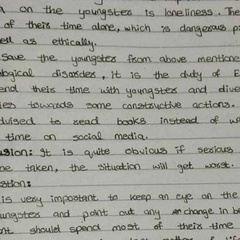 on the youngster is loneliness. The
of their time alone, which is dangerous p
ed as ethically.
Save the youngster from above mentione
ological disorder, it is the duty of E
end their time with youngsters and dive
ies towards some constructive actions.
dvised to read books instead of w
time on social media.
usion: It is quite obvious if serious
be taken, the situation will get worst.
stion:
is very important to keep an eye on the
ungster and point out any change in b
nt should spend most of their time